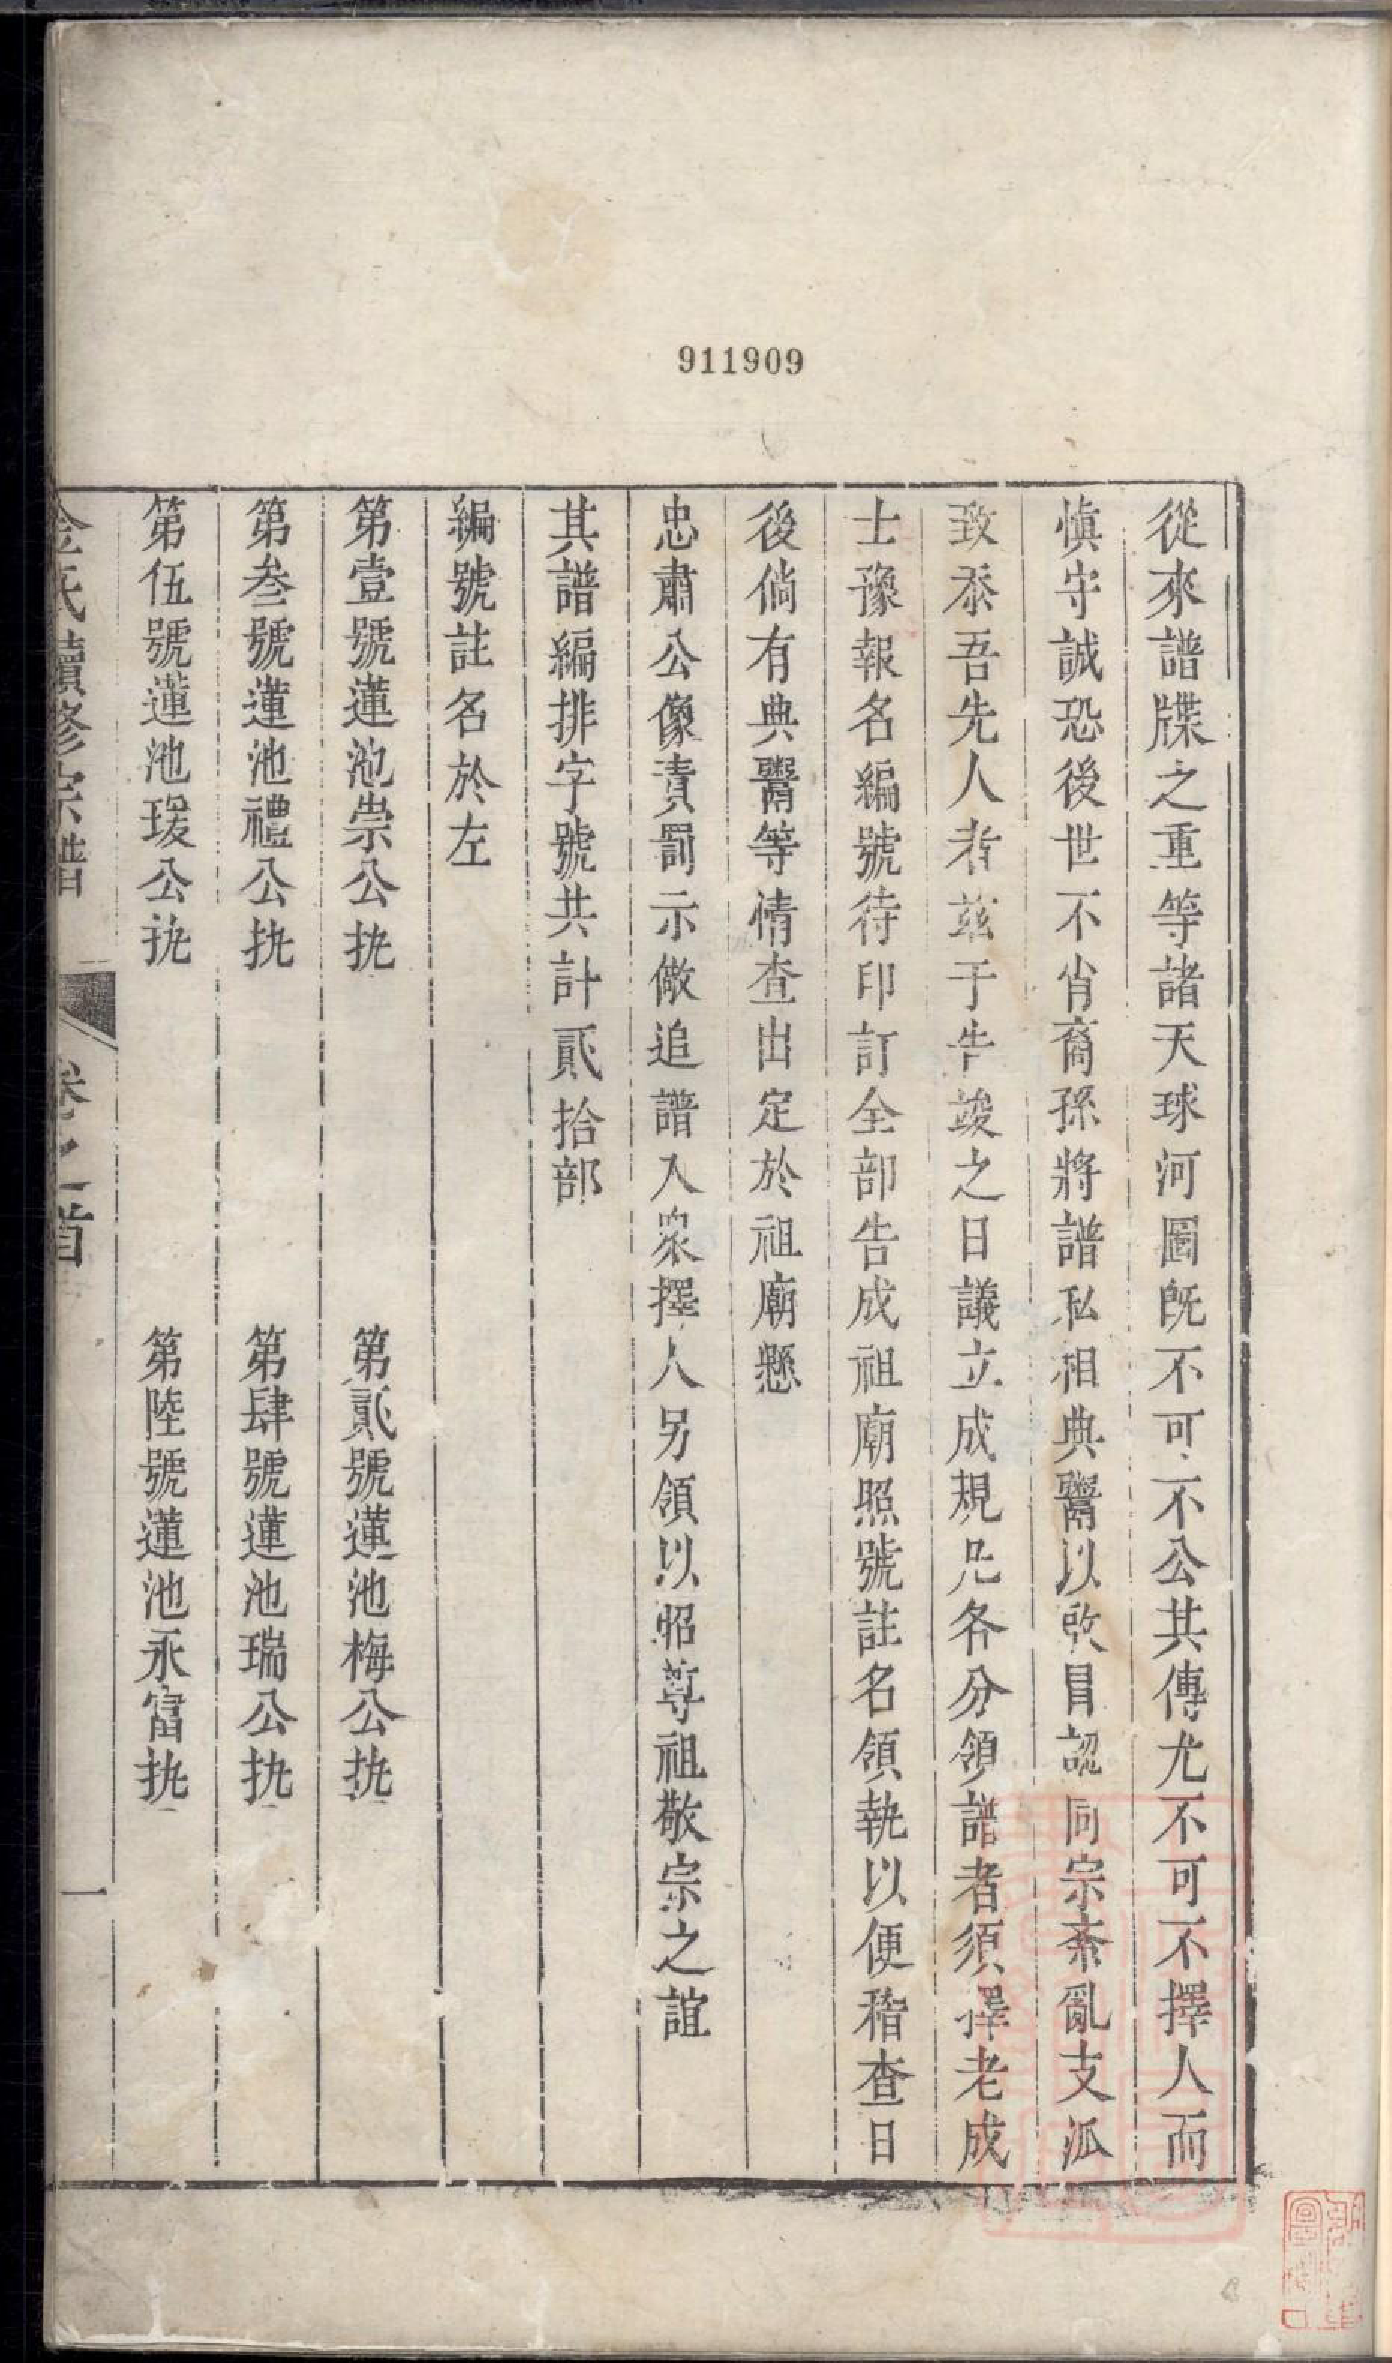 911909
從來譜牒之重等諸天球河圖旣不可不公共傳尤不可不擇人而
愼守誠恐後世不肖裔孫將譜私相典鬻以啟冒認同宗紊亂支派
致忝吾先人者茲于告竣之日議立成規凡各分領譜者須擇老成
士豫報名編號待印訂全部告成祖廟照號註名領執以便稽查日
後倘有典鬻等情查出定於祖廟懸
忠肅公像責罰示儆追譜入衆擇人另領以昭尊祖敬宗之誼
其譜編排字號共計貳拾部
編號註名於左
第壹號蓮池崇公執　第貳號蓮池梅公執
第叁號蓮池禮公執　第肆號蓮池瑞公執
第伍號蓮池瑗公執　第陸號蓮池永富執
金氏續修宗譜　卷之首　一